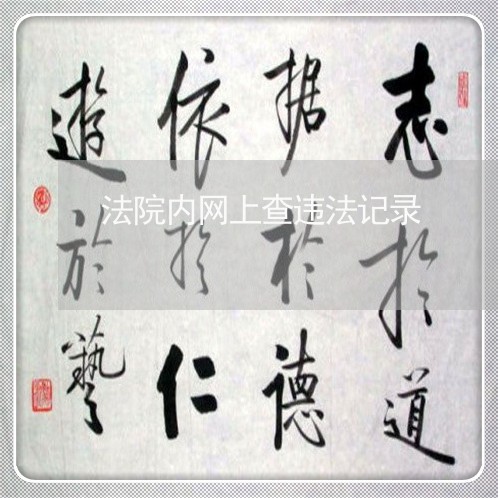 志於道
据於德
依於仁
遊於藝
法院内网上查违法记录